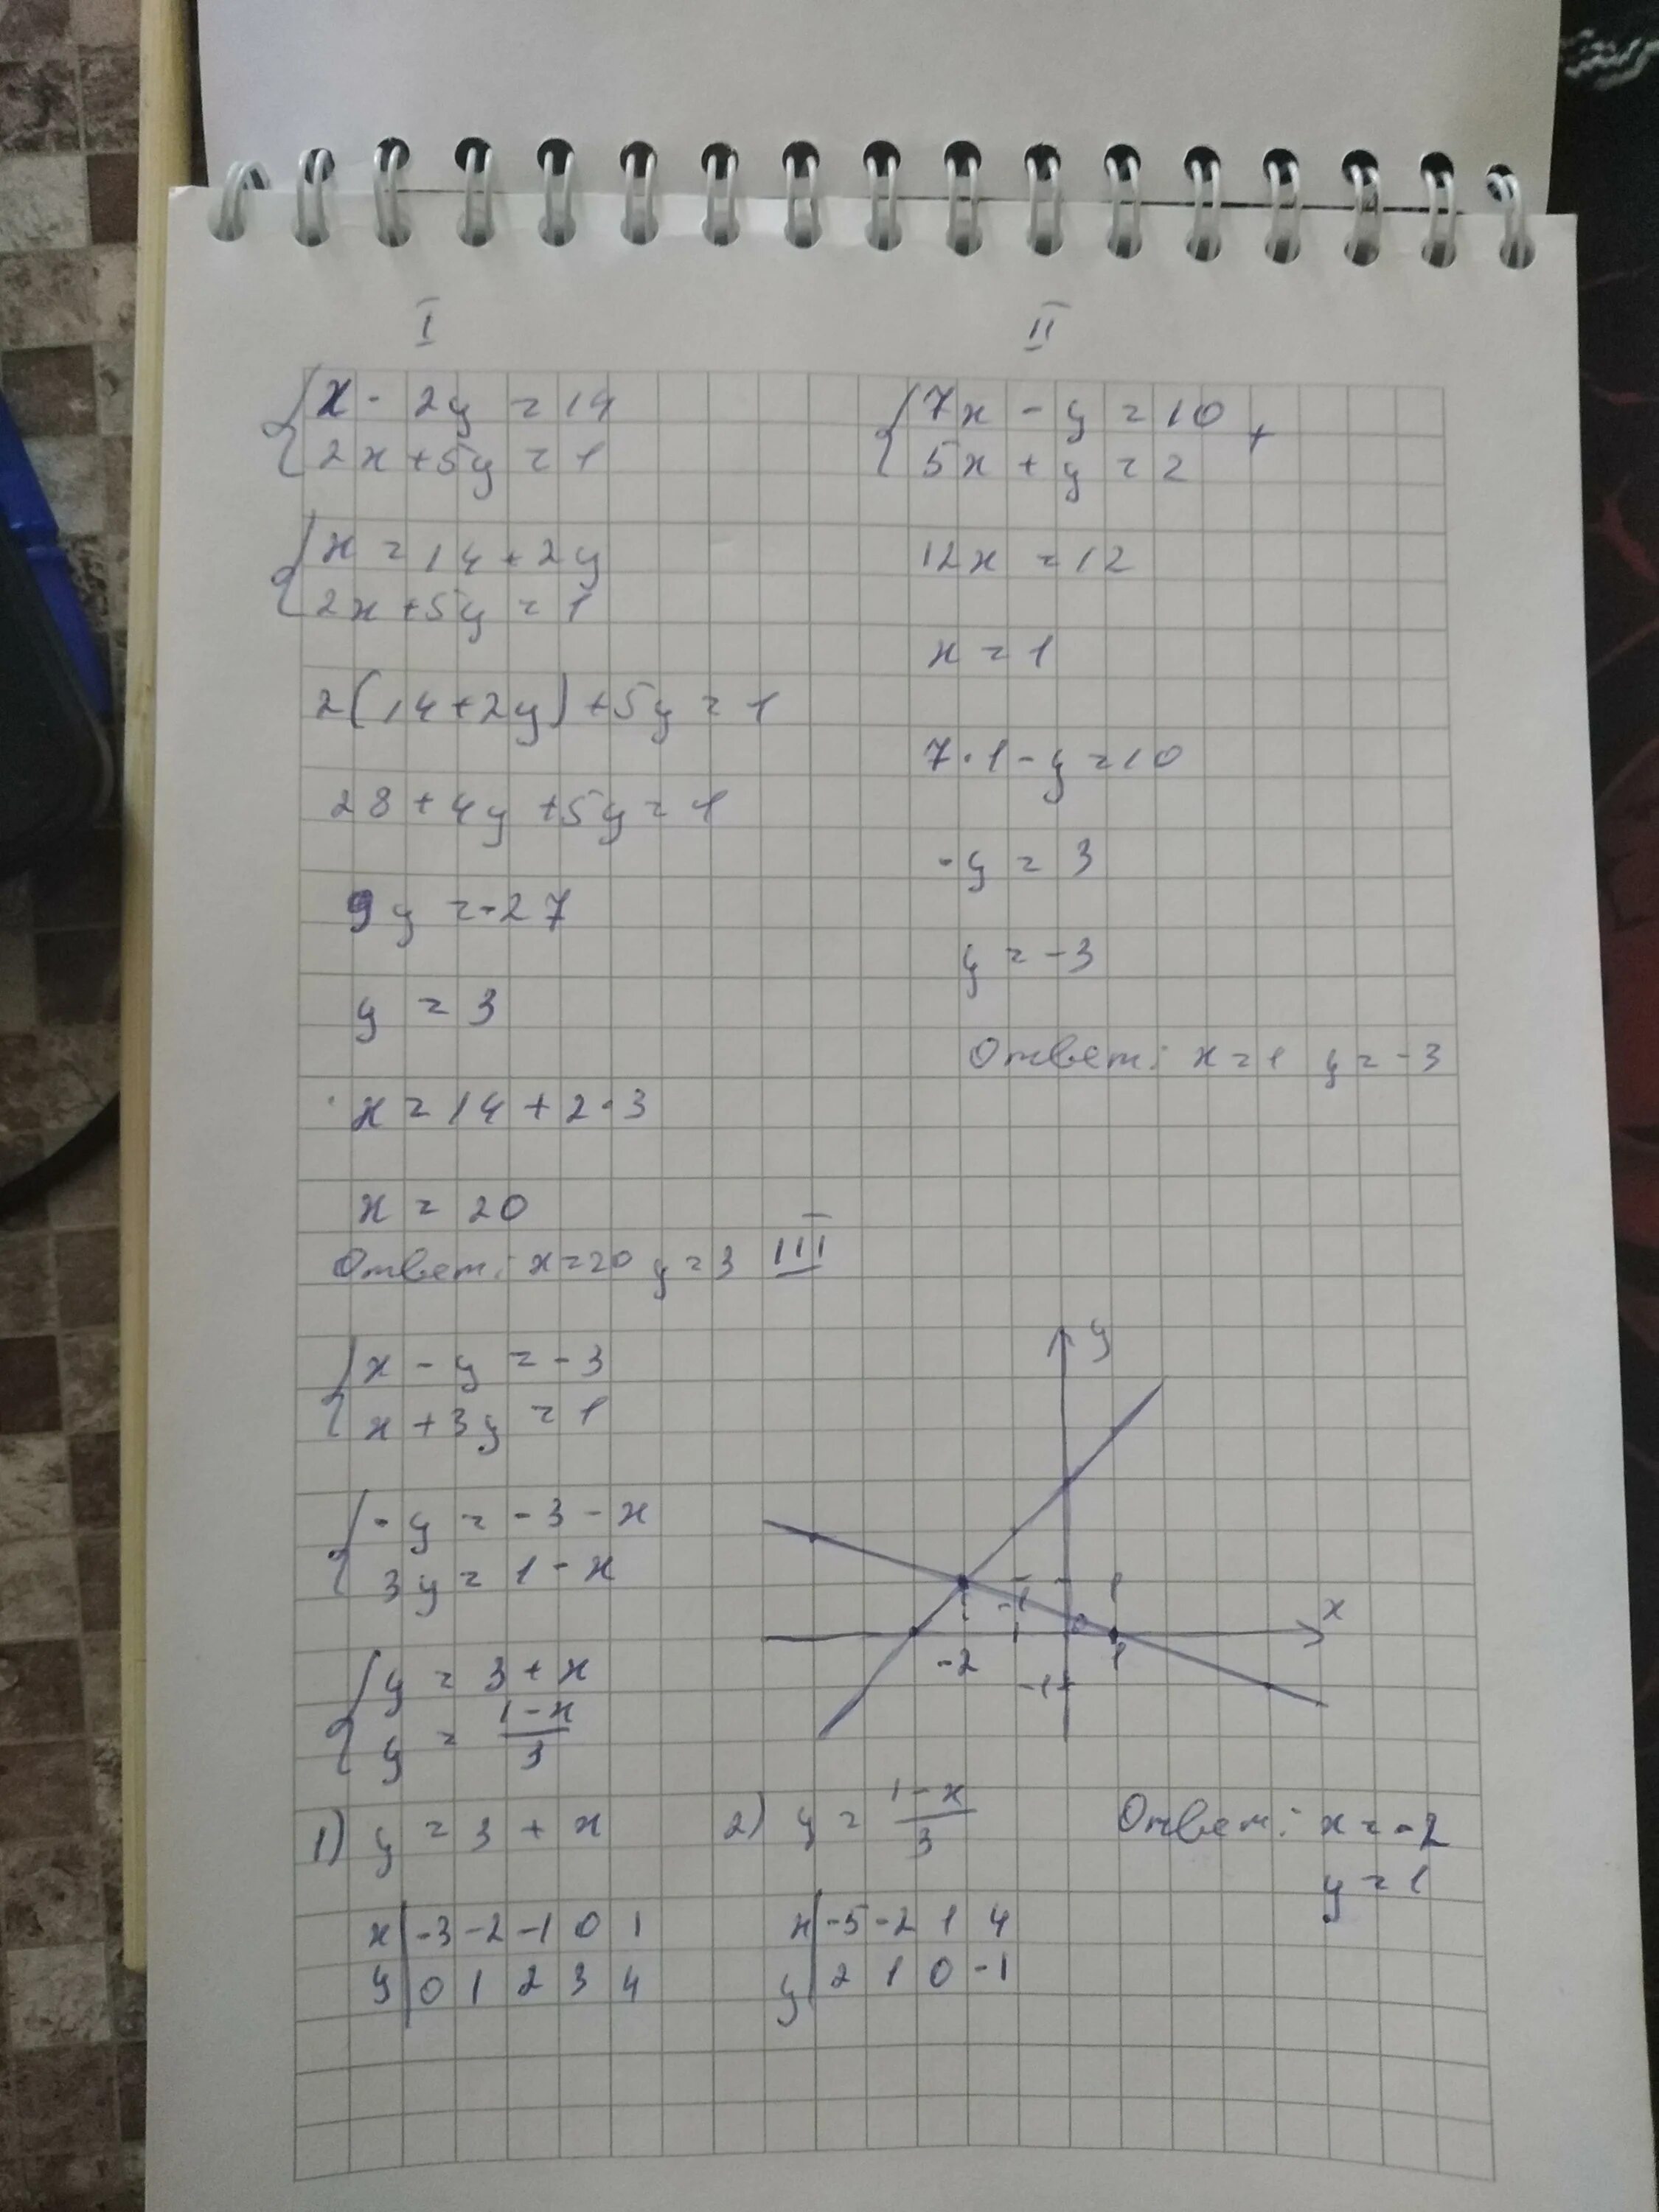 I
x - 2y = 14
2x + 5y = 1
x = 14 + 2y
2x + 5y = 1
2(14 + 2y) + 5y = 1
28 + 4y + 5y = 1
9y = -27
y = 3
x = 14 + 2·3
x = 20
Ответ: x = 20 y = 3
II
7x - y = 10 +
5x + y = 2
12x = 12
x = 1
7·1 - y = 10
-y = 3
y = -3
Ответ: x = 1 y = -3
III
x - y = -3
x + 3y = 1
-y = -3 - x
3y = 1 - x
y = 3 + x
y = \frac{1-x}{3}
y
-1 1
0 x
-2 1
-1
1) y = 3 + x
x | -3 -2 -1 0 1
y | 0 1 2 3 4
2) y = \frac{1-x}{3}
x | -5 -2 1 4
y | 2 1 0 -1
Ответ: x = -2
y = 1